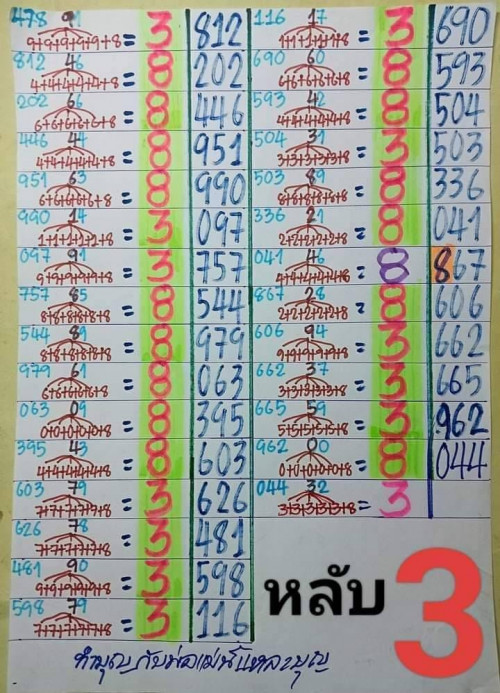 478 91
9+9+9+9+9+8 = 3 812
812 46
4+4+4+4+4+8 = 8 202
202 66
6+6+6+6+6+8 = 8 446
446 44
4+4+4+4+4+8 = 8 951
951 63
6+6+6+6+6+8 = 8 990
990 14
1+1+1+1+1+8 = 3 097
097 91
9+9+9+9+9+8 = 3 757
757 85
8+8+8+8+8+8 = 8 544
544 89
8+8+8+8+8+8 = 8 979
979 61
6+6+6+6+6+8 = 8 063
063 09
0+0+0+0+0+8 = 8 395
395 43
4+4+4+4+4+8 = 8 603
603 79
7+7+7+7+7+8 = 3 626
626 78
7+7+7+7+7+8 = 3 481
481 90
9+9+9+9+9+8 = 3 598
598 79
7+7+7+7+7+8 = 3 116
116 17
1+1+1+1+1+8 = 3 690
690 60
6+6+6+6+6+8 = 8 593
593 42
4+4+4+4+4+8 = 8 504
504 31
3+3+3+3+3+8 = 3 503
503 89
8+8+8+8+8+8 = 8 336
336 21
2+2+2+2+2+8 = 8 041
041 46
4+4+4+4+4+8 = 8 867
867 28
2+2+2+2+2+8 = 8 606
606 94
9+9+9+9+9+8 = 3 662
662 37
3+3+3+3+3+8 = 3 665
665 59
5+5+5+5+5+8 = 3 962
962 00
0+0+0+0+0+8 = 8 044
044 32
3+3+3+3+3+8 = 3
หลับ 3
ทำบุญกับพ่อแม่นี่แหละบุญ